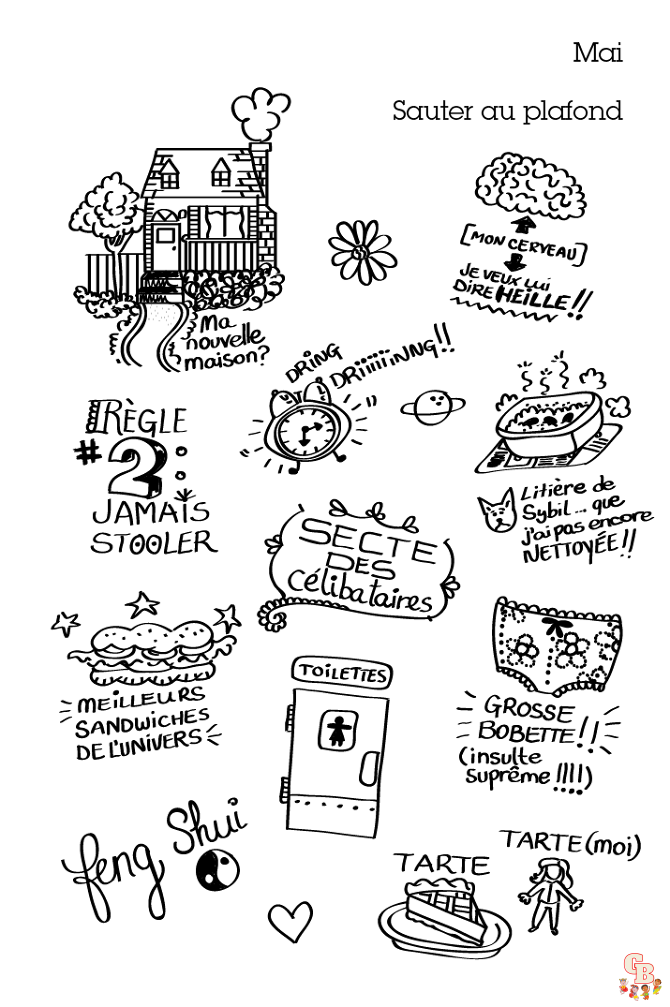 Mai
Sauter au plafond
[MON CERVEAU]
JE VEUX LUI
DIRE HEILLE!!
Ma
nouvelle
maison?
DRING
DRIIIIINNG!!
RÈGLE
#2:
JAMAIS
STOOLER
Litière de
Sybil... que
j'ai pas encore
NETTOYÉE!!
SECTE
DES
Célibataires
MEILLEURS
SANDWICHES
DE L'UNIVERS
TOILETTES
GROSSE
BOBETTE!!
(insulte
suprême!!!!)
feng Shui
TARTE
TARTE (moi)
GB